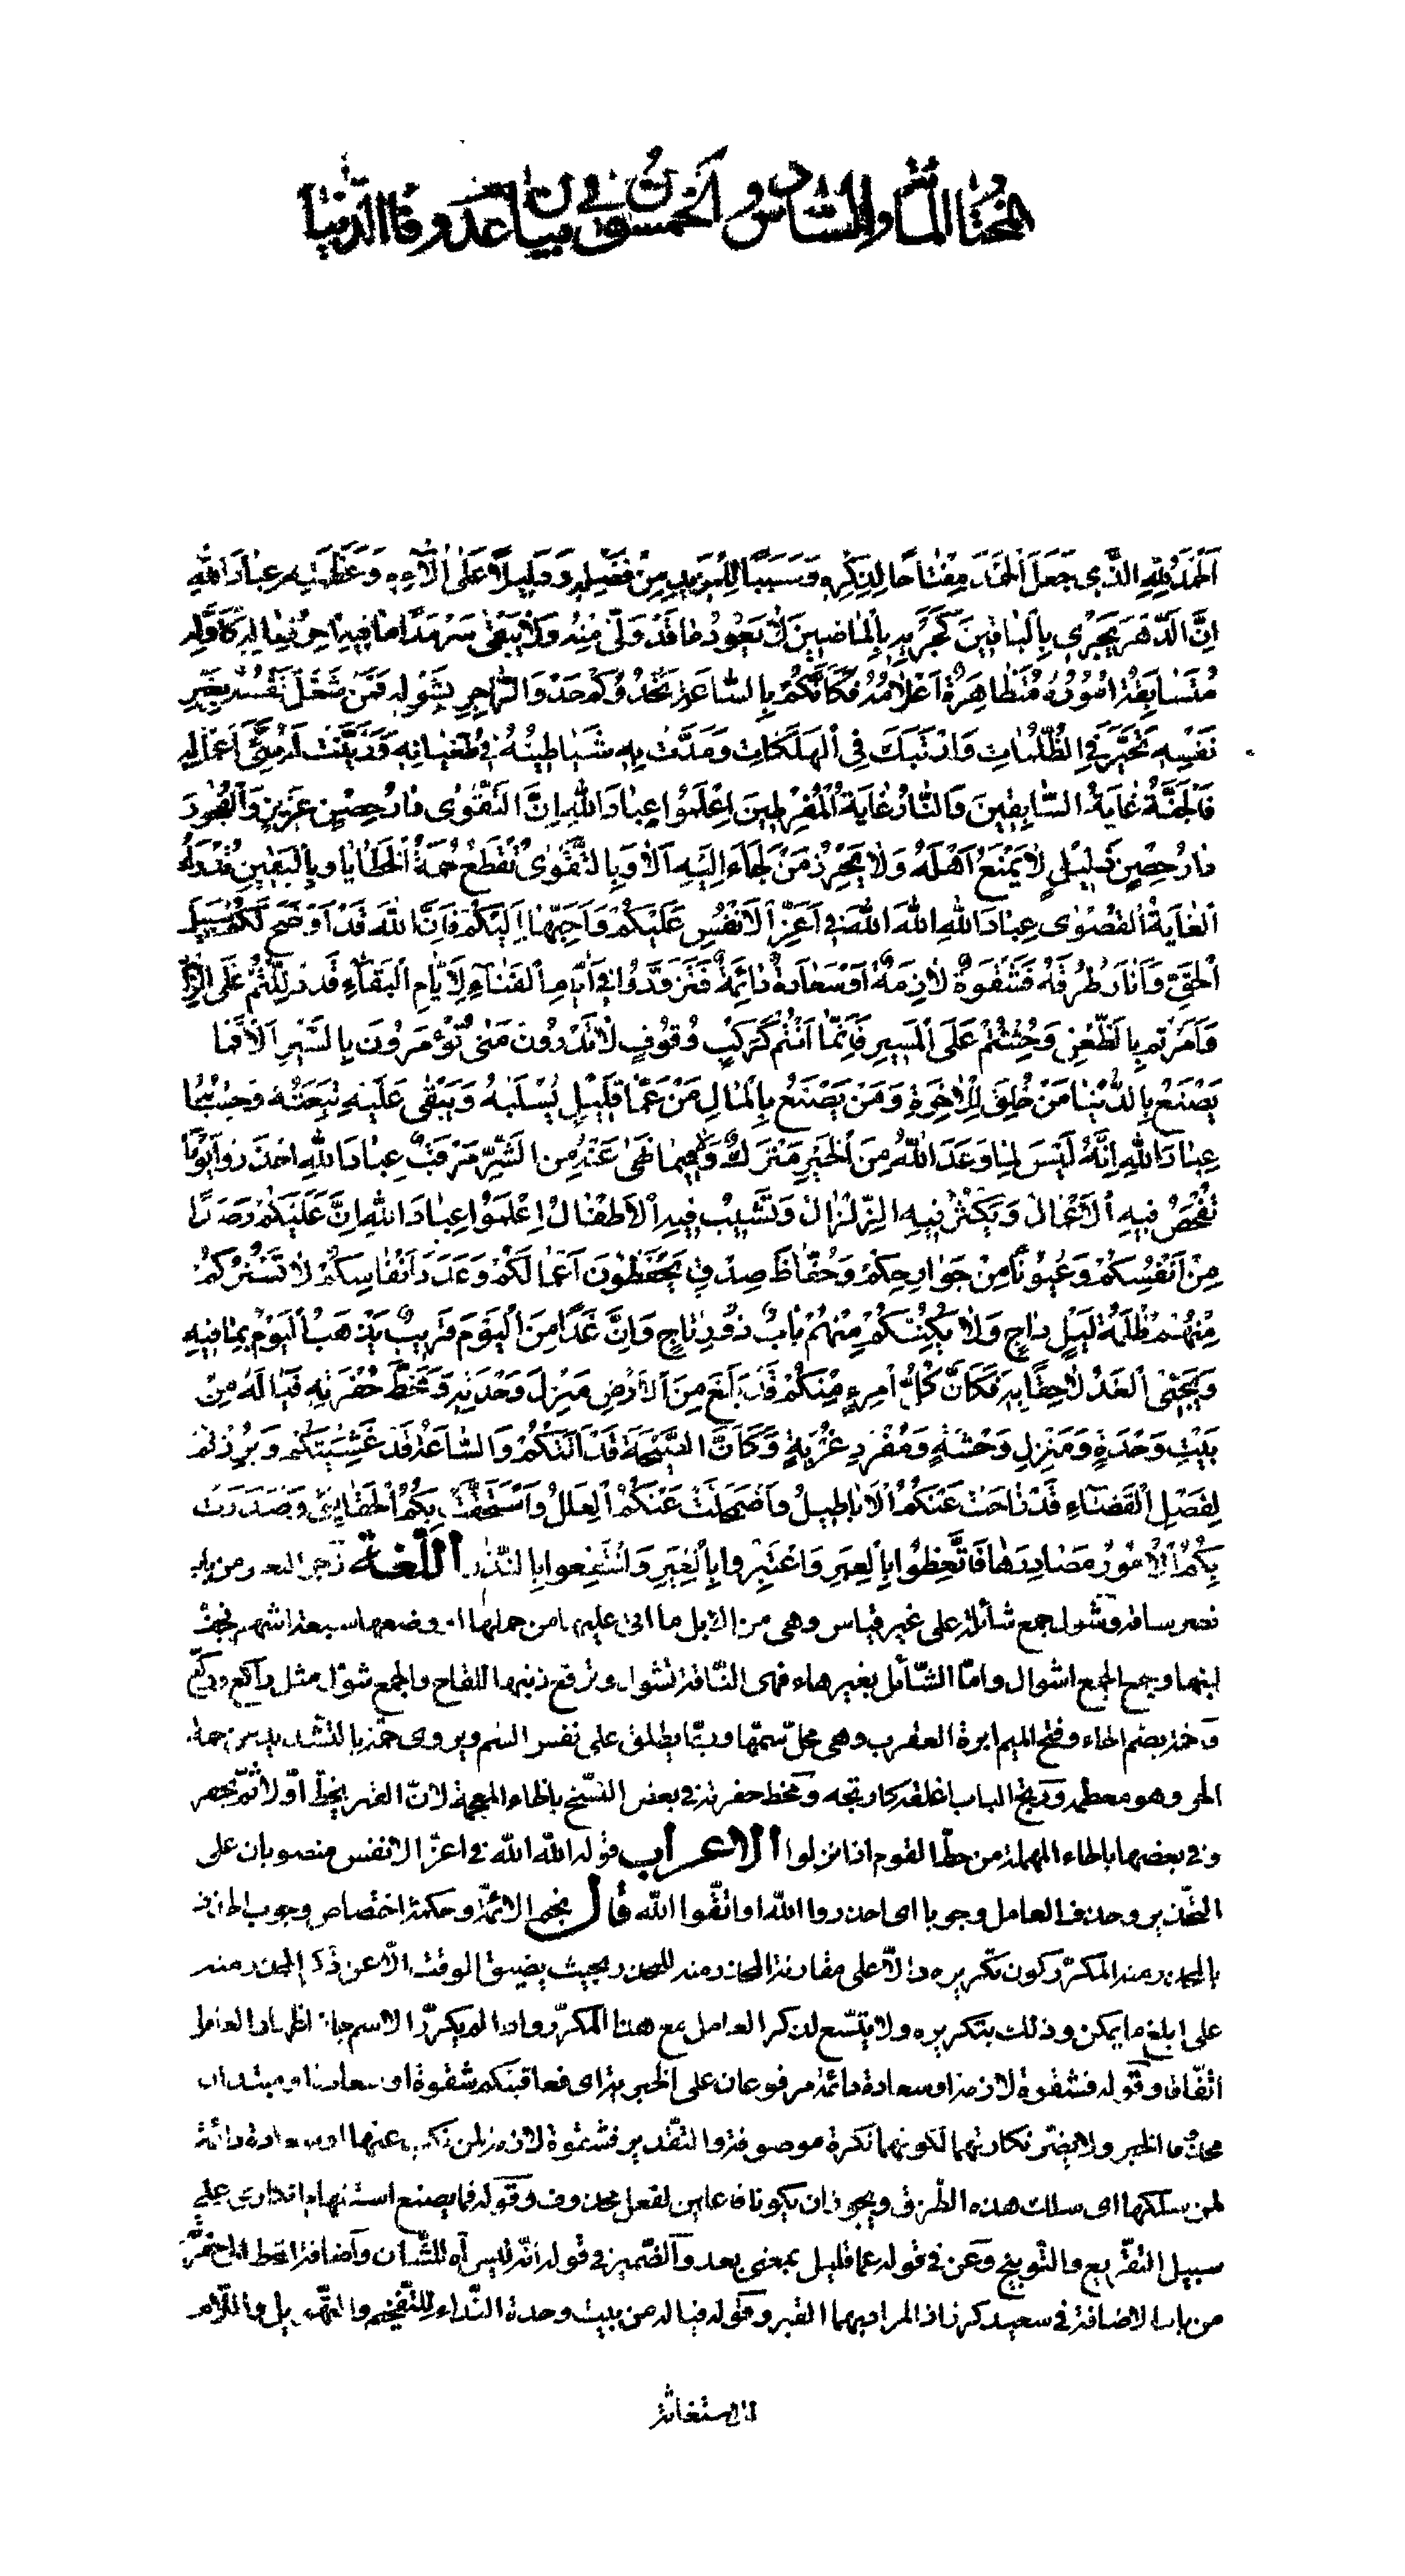 المختار المأة والسادس والخمسون في بيان عدو فا الدنيا
اَلْحَمْدُ لِلّٰهِ الَّذي جَعَلَ الْحَمْدَ مِفْتٰاحًا لِذِكْرِهِ وَسَبَبًا لِلْمَزيدِ مِنْ فَضْلِهِ وَدَليلًا عَلىٰ اٰلاٰئِهِ وَعَظَمَتِهِ عِبٰادَ اللهِ
اِنَّ الدَّهْرَ يَجْري بِالْبٰاقينَ كَجَرْيِهِ بِالْمٰاضينَ لاٰ يَعُودُ مٰا قَدْ وَلّىٰ مِنْهُ وَلاٰ يَبْقىٰ سَرْمَدًا مٰا فيهِ اٰخِرُ فِعٰالِهِ كَاَوَّلِهِ
مُتَسٰابِقَةٌ اُمُورُهُ مُتَظٰاهِرَةٌ اَعْلاٰمُهُ فَكَاَنَّكُمْ بِالسّٰاعَةِ تَحْدُوكُمْ حَدْوَ الزّٰاجِرِ بِشَوْلِهِ فَمَنْ شَغَلَ نَفْسَهُ بِغَيْرِ
نَفْسِهِ تَحَيَّرَ فِي الظُّلُمٰاتِ وَارْتَبَكَ فِي الْهَلَكٰاتِ وَمَدَّتْ بِهِ شَيٰاطينُهُ في طُغْيٰانِهِ وَزَيَّنَتْ لَهُ سَيِّئَ اَعْمٰالِهِ
فَالْجَنَّةُ غٰايَةُ السّٰابِقينَ وَالنّٰارُ غٰايَةُ الْمُفَرِّطينَ اِعْلَمُوا عِبٰادَ اللهِ اِنَّ التَّقْوٰى دٰارُ حِصْنٍ عَزيزٍ وَالْفُجُورَ
دٰارُ حِصْنٍ ذَليلٍ لاٰ يَمْنَعُ اَهْلَهُ وَلاٰ يُحْرِزُ مَنْ لَجَاَ اِلَيْهِ اَلاٰ وَبِالتَّقْوٰى تُقْطَعُ حُمَةُ الْخَطٰايٰا وَبِالْيَقينِ تُدْرَكُ
الْغٰايَةُ الْقُصْوٰى عِبٰادَ اللهِ اللهَ اللهَ في اَعَزِّ الْاَنْفُسِ عَلَيْكُمْ وَاَحَبِّهٰا اِلَيْكُمْ فَاِنَّ اللهَ قَدْ اَوْضَحَ لَكُمْ سَبيلَ
الْحَقِّ وَاَنٰارَ طُرُقَهُ فَشَقْوَةٌ لاٰزِمَةٌ اَوْ سَعٰادَةٌ دٰائِمَةٌ فَتَزَوَّدُوا في اَيّٰامِ الْفَنٰاءِ لِاَيّٰامِ الْبَقٰاءِ قَدْ دُلِلْتُمْ عَلَى الزّٰادِ
وَاُمِرْتُمْ بِالظَّعْنِ وَحُثِثْتُمْ عَلَى الْمَسيرِ فَاِنَّمٰا اَنْتُمْ كَرَكْبٍ وُقُوفٍ لاٰ تَدْرُونَ مَتىٰ تُؤْمَرُونَ بِالسَّيْرِ اَلاٰ فَمٰا
يَصْنَعُ بِالدُّنْيٰا مَنْ خُلِقَ لِلْاٰخِرَةِ وَمٰا يَصْنَعُ بِالْمٰالِ مَنْ عَمّٰا قَليلٍ يُسْلَبُهُ وَيَبْقىٰ عَلَيْهِ تَبِعَتُهُ وَحِسٰابُهُ
عِبٰادَ اللهِ اِنَّهُ لَيْسَ لِمٰا وَعَدَ اللهُ مِنَ الْخَيْرِ مَتْرَكٌ وَلاٰ فيمٰا نَهىٰ عَنْهُ مِنَ الشَّرِّ مَرْغَبٌ عِبٰادَ اللهِ احْذَرُوا يَوْمًا
تُفْحَصُ فيهِ الْاَعْمٰالُ وَيَكْثُرُ فيهِ الزِّلْزٰالُ وَتَشيبُ فيهِ الْاَطْفٰالُ اِعْلَمُوا عِبٰادَ اللهِ اِنَّ عَلَيْكُمْ رَصَدًا
مِنْ اَنْفُسِكُمْ وَعُيُونًا مِنْ جَوٰارِحِكُمْ وَحُفّٰاظَ صِدْقٍ يَحْفَظُونَ اَعْمٰالَكُمْ وَعَدَدَ اَنْفٰاسِكُمْ لاٰ تَسْتُرُكُمْ
مِنْهُمْ ظُلْمَةُ لَيْلٍ دٰاجٍ وَلاٰ يُكِنُّكُمْ مِنْهُمْ بٰابٌ ذُو رِتٰاجٍ وَاِنَّ غَدًا مِنَ الْيَوْمِ قَريبٌ يَذْهَبُ الْيَوْمُ بِمٰا فيهِ
وَيَجيئُ الْغَدُ لاٰحِقًا بِهِ فَكَاَنَّ كُلَّ امْرِءٍ مِنْكُمْ قَدْ بَلَغَ مِنَ الْاَرْضِ مَنْزِلَ وَحْدَتِهِ وَمَخَطَّ حُفْرَتِهِ فَيٰا لَهُ مِنْ
بَيْتِ وَحْدَةٍ وَمَنْزِلِ وَحْشَةٍ وَمُفْرَدِ غُرْبَةٍ وَكَاَنَّ الصَّيْحَةَ قَدْ اَتَتْكُمْ وَالسّٰاعَةُ قَدْ غَشِيَتْكُمْ وَبُرِزْتُمْ
لِفَصْلِ الْقَضٰاءِ قَدْ زٰاحَتْ عَنْكُمُ الْاَبٰاطيلُ وَاضْمَحَلَّتْ عَنْكُمُ الْعِلَلُ وَاسْتَحَقَّتْ بِكُمُ الْحَقٰايِقُ وَصَدَرَتْ
بِكُمُ الْاُمُورُ مَصٰادِرَهٰا فَاتَّعِظُوا بِالْعِبَرِ وَاعْتَبِرُوا بِالْغِيَرِ وَانْتَفِعُوا بِالنُّذُرِ اللّغة زجر البعير من باب
نصر ساقه وشول جمع شائلة على غير قياس وهى من الابل ما اتى عليها من حملها او وضعها سبعة اشهر فجفّ
لبنها وجمع الجمع اشوال وامّا الشّائل بغير هاء فهى النّاقة تشول وترفع ذنبها للقاح والجمع شوّل مثل راكع وركّع
وحمة بضم الحاء وفتح الميم ابرة العقرب وهى محلّ سمّها وربّما يطلق على نفس السّم ويروى حمّة بالتشديد من حمة
الحر وهو معظمه ورتج الباب اغلقه كارتجه ومخط حفرته في بعض النسّخ بالخاء المعجمة لانّ القبر يخطّ اوّلا ثمّ يحفر
وفي بعضها بالحاء المهملة من حطّ القوم اذا نزلوا الاعراب قوله الله الله في اعزّ الانفس منصوبان على
التّحذير وحذف العامل وجوبا اى احذروا الله او اتّقوا الله قال نجم الائمّة وحكمة اختصاص وجوب الحذف
بالمحذر منه المكرّر كون تكريره دالّا على مقارنة المحذر منه للمحذر بحيث يضيق الوقت الّا عن ذكر المحذر منه
على ابلغ ما يمكن وذلك بتكريره ولا يتّسع لذكر العامل مع هذا المكرّر واذا لم يكرّر الاسم جاز اظهار العامل
اتّفاقا وقوله فشقوة لازمة او سعادة دائمة مرفوعان على الخبريّة اى فعاقبتكم شقوة او سعادة او مبتدءان
محذوفا الخبر ولا يضرّ نكارتهما لكونهما نكرة موصوفة والتّقدير فشقوة لازمة لمن نكب عنها او سعادة دائمة
لمن سلكها اى سلك هذه الطّرق ويجوز ان يكونا فاعلين لفعل محذوف وقوله فما يصنع استفهام انكارى على
سبيل التّقريع والتّوبيخ وعن في قوله عمّا قليل بمعنى بعد والضّمير في قوله انّه ليس آه للشّان واضافة مخط الى حفرته
من باب الاضافة في سعيد كرز اذ المراد بهما القبر وقوله فيا له من بيت وحدة النّداء للتّفخيم والتّهويل واللّام
للاستغاثة